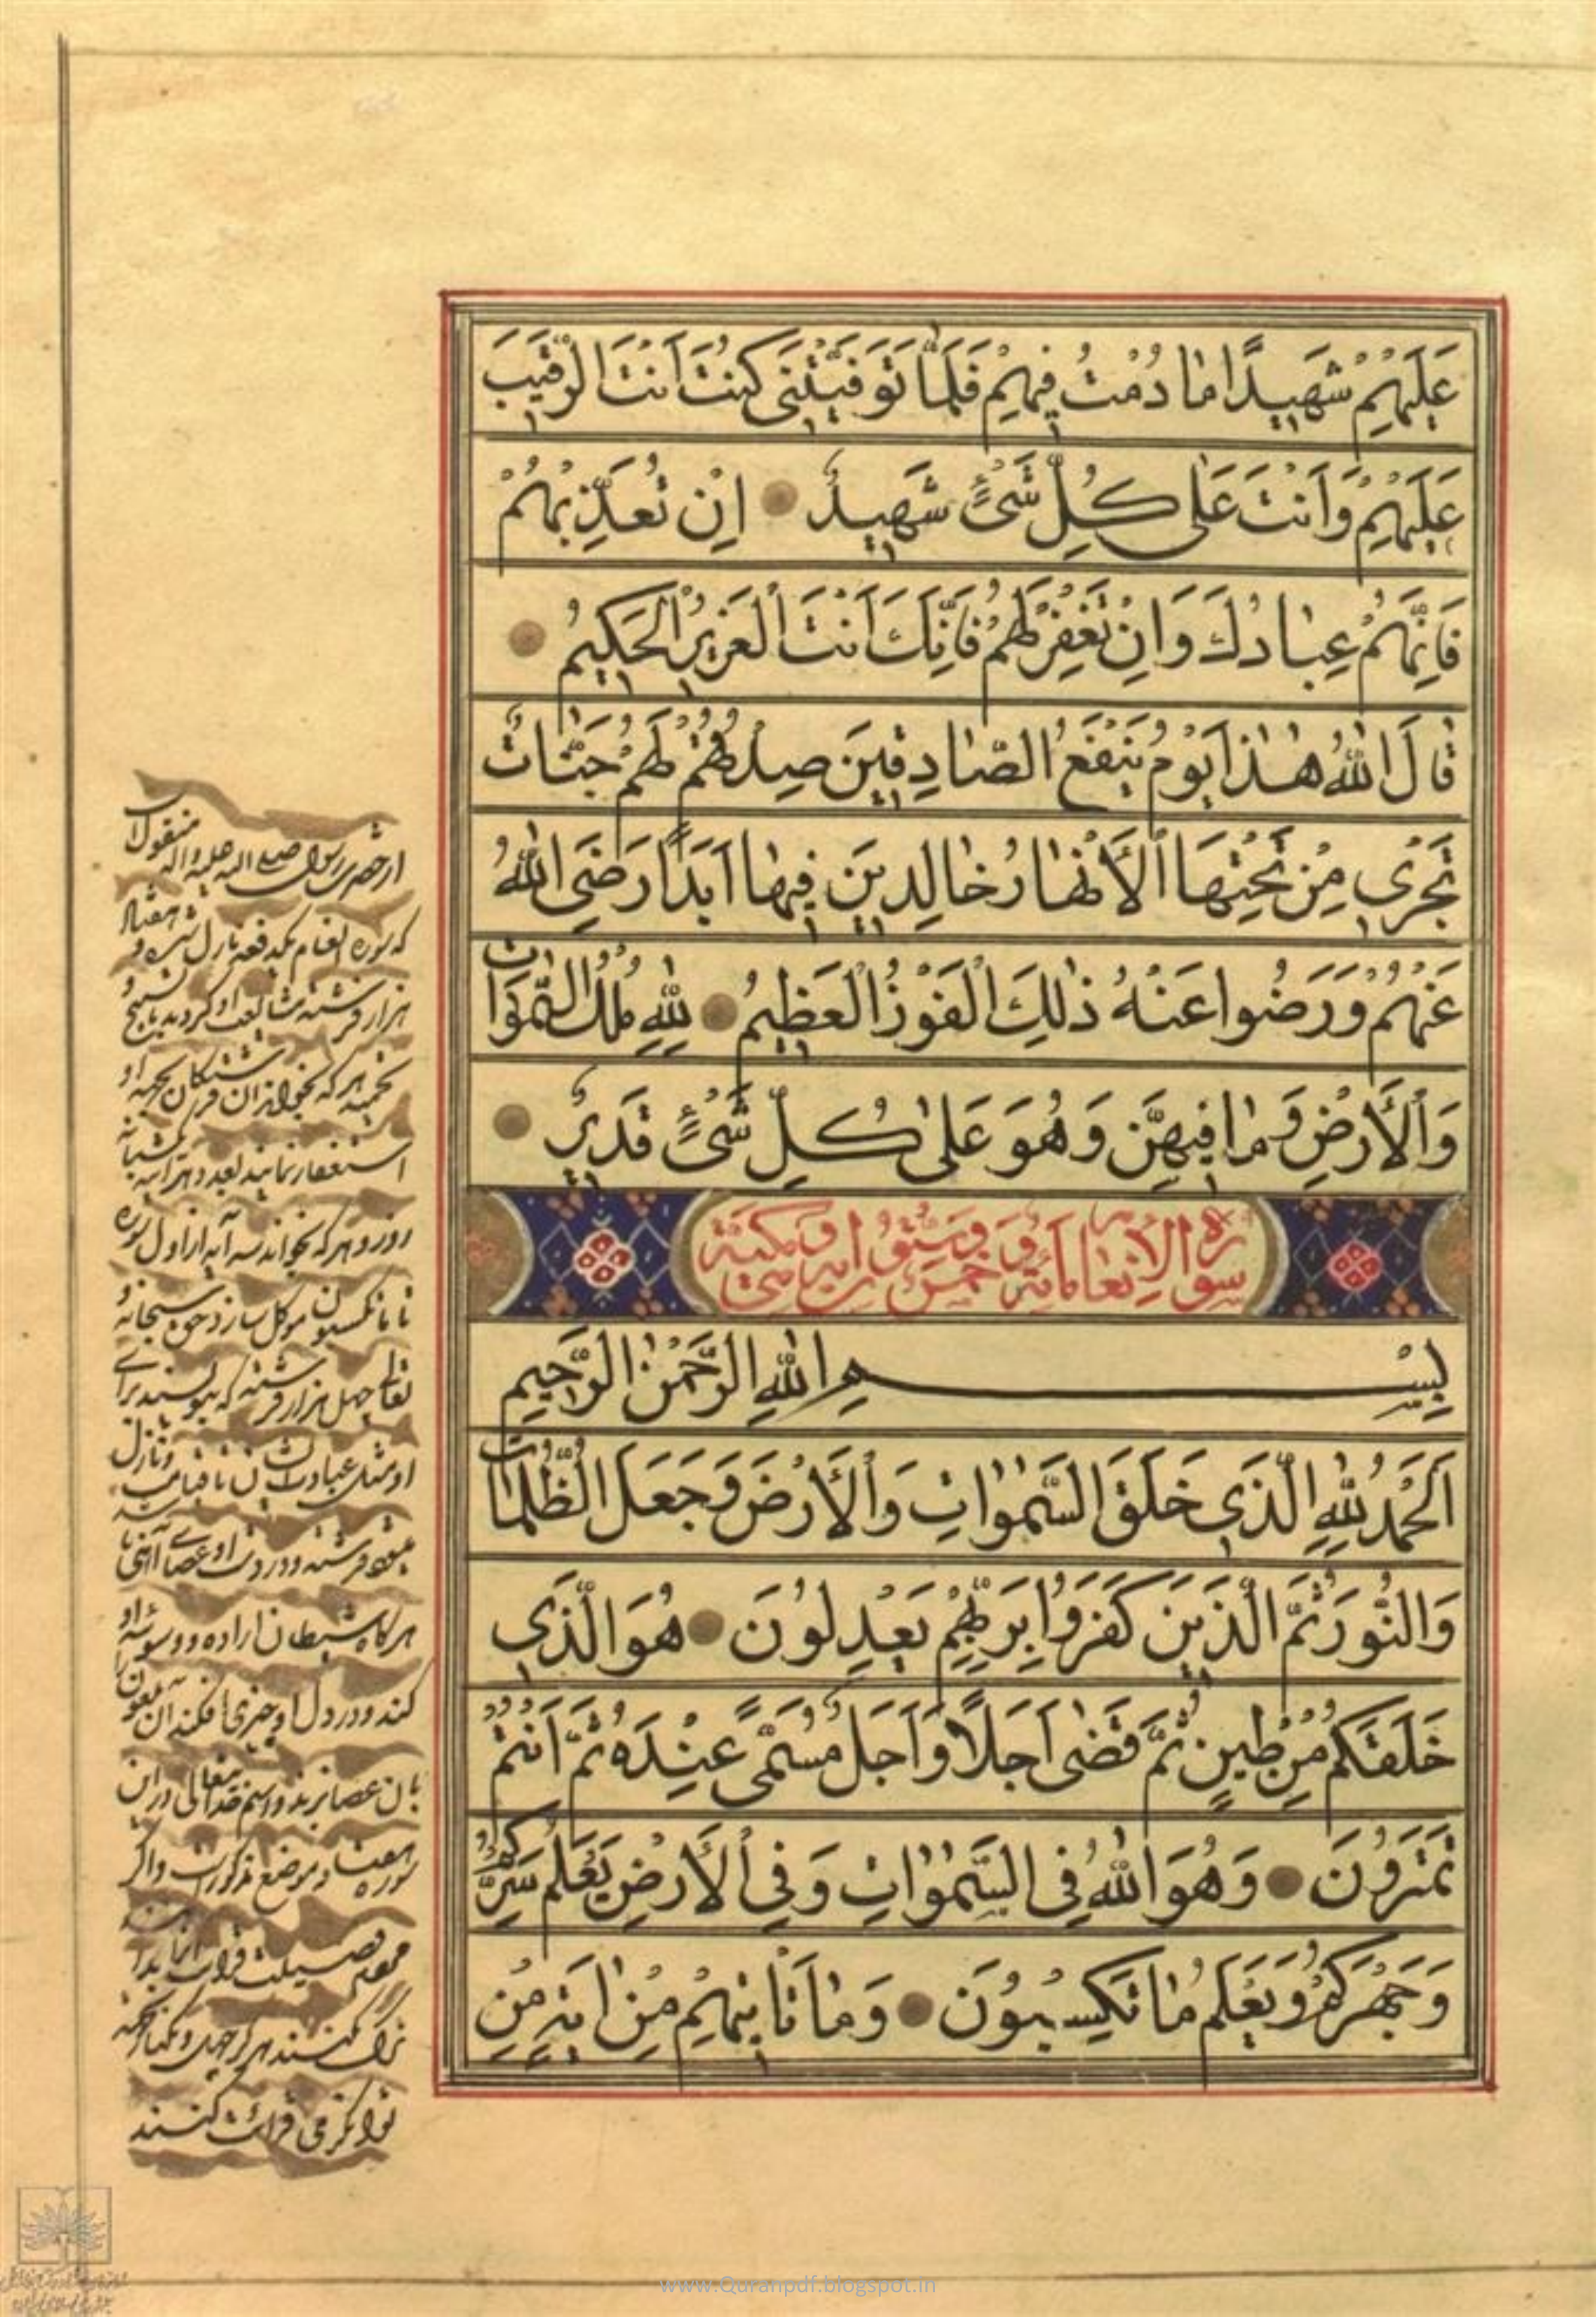 عَلَيْهِمْ شَهِيدًا مَا دُمْتُ فِيهِمْ فَلَمَّا تَوَفَّيْتَنِي كُنْتَ أَنْتَ الرَّقِيبَ
عَلَيْهِمْ وَأَنْتَ عَلَى كُلِّ شَيْءٍ شَهِيدٌ إِنْ تُعَذِّبْهُمْ
فَإِنَّهُمْ عِبَادُكَ وَإِنْ تَغْفِرْ لَهُمْ فَإِنَّكَ أَنْتَ الْعَزِيزُ الْحَكِيمُ
قَالَ اللَّهُ هٰذَا يَوْمُ يَنْفَعُ الصَّادِقِينَ صِدْقُهُمْ لَهُمْ جَنَّاتٌ
تَجْرِي مِنْ تَحْتِهَا الْأَنْهَارُ خَالِدِينَ فِيهَا أَبَدًا رَضِيَ اللَّهُ
عَنْهُمْ وَرَضُوا عَنْهُ ذٰلِكَ الْفَوْزُ الْعَظِيمُ لِلَّهِ مُلْكُ السَّمٰوَاتِ
وَالْأَرْضِ وَمَا فِيهِنَّ وَهُوَ عَلَى كُلِّ شَيْءٍ قَدِيرٌ
سورة الانعام مائة و خمس وستون اية مكية
بِسْمِ اللَّهِ الرَّحْمٰنِ الرَّحِيمِ
اَلْحَمْدُ لِلَّهِ الَّذِي خَلَقَ السَّمٰوَاتِ وَالْأَرْضَ وَجَعَلَ الظُّلُمَاتِ
وَالنُّورَ ثُمَّ الَّذِينَ كَفَرُوا بِرَبِّهِمْ يَعْدِلُونَ هُوَ الَّذِي
خَلَقَكُمْ مِنْ طِينٍ ثُمَّ قَضَى أَجَلًا وَأَجَلٌ مُسَمًّى عِنْدَهُ ثُمَّ أَنْتُمْ
تَمْتَرُونَ وَهُوَ اللَّهُ فِي السَّمٰوَاتِ وَفِي الْأَرْضِ يَعْلَمُ سِرَّكُمْ
وَجَهْرَكُمْ وَيَعْلَمُ مَا تَكْسِبُونَ وَمَا تَأْتِيهِمْ مِنْ اٰيَةٍ مِنْ
از حضرت رسول صلی الله علیه و اله منقول
که سوره انعام یکدفعه نازل شد و هفتاد
هزار فرشته مشایعت او کردند با تسبیح و
تحمید هر که بخواند آن فرشتگان بجهة او
استغفار نمایند بعدد هر آیه
روز و هر که بخواند سه آیه از اول سوره
تا تکسبون موکل سازد حق سبحانه و
تعالی چهل هزار فرشته که بنویسند برای
او مثل عبادت ایشان تا قیامت و نازل
فرشته و در دست او عصای آهنی
هرگاه شیطان اراده وسوسه او
کند و در دل او چیزی افکند آن
بان عصا بزند
سوره
فضیلت
کنند هر که
قرائت کنند
www.Quranpdf.blogspot.in